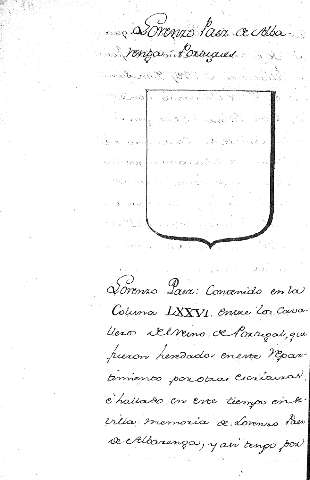 Lorenzo Paez de Alba-
renga. Portugues
Lorenzo Paez: Contenido en la
Coluna LXXVI. entre los Cava-
lleros del Reino de Portugal, que
fueron heredados en este Repar-
timiento por otras escrituras
é hallado en este tiempo en Se-
villa memoria de Lorenzo Paez
de Albarenga, y asi tengo por